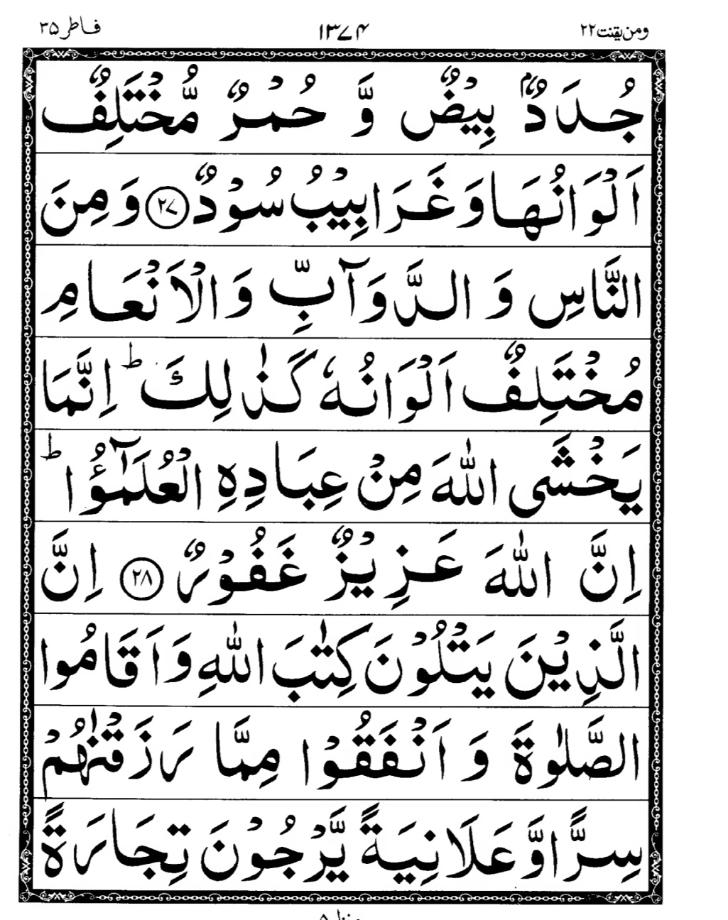 ومن یقنت۲۲ ۱۳۷۴ فاطر۳۵
جُدَدٌۢ بِیْضٌ وَّ حُمْرٌ مُّخْتَلِفٌ
اَلْوَانُهَا وَغَرَابِیْبُ سُوْدٌ ﴿۲۷﴾ وَ مِنَ
النَّاسِ وَ الدَّوَآبِّ وَالْاَنْعَامِ
مُخْتَلِفٌ اَلْوَانُهٗ كَذٰلِكَ ؕ اِنَّمَا
یَخْشَی اللّٰهَ مِنْ عِبَادِهِ الْعُلَمٰٓؤُا ؕ
اِنَّ اللّٰهَ عَزِیْزٌ غَفُوْرٌ ﴿۲۸﴾ اِنَّ
الَّذِیْنَ یَتْلُوْنَ كِتٰبَ اللّٰهِ وَاَقَامُوا
الصَّلٰوةَ وَ اَنْفَقُوْا مِمَّا رَزَقْنٰهُمْ
سِرًّا وَّعَلَانِیَةً یَّرْجُوْنَ تِجَارَةً